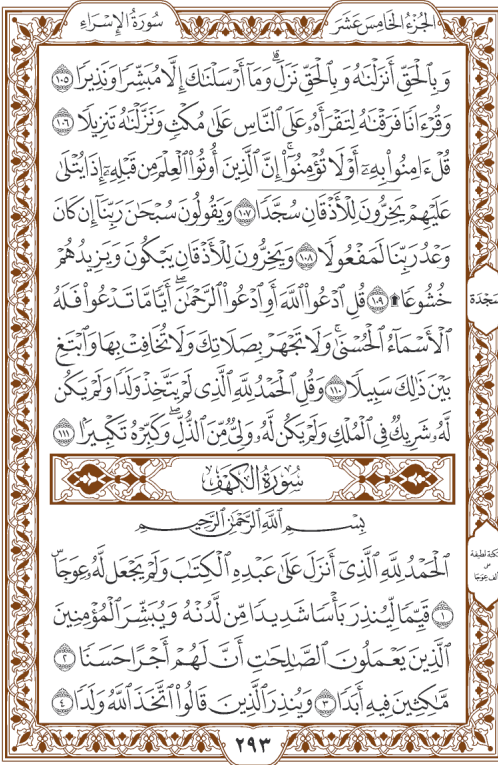 الجُزْءُ الخَامِسَ عَشَرَ
سُورَةُ الإِسْرَاءِ
وَبِٱلْحَقِّ أَنزَلْنَٰهُ وَبِٱلْحَقِّ نَزَلَۗ وَمَآ أَرْسَلْنَٰكَ إِلَّا مُبَشِّرًا وَنَذِيرًا ١٠٥
وَقُرْءَانًا فَرَقْنَٰهُ لِتَقْرَأَهُۥ عَلَى ٱلنَّاسِ عَلَىٰ مُكْثٍ وَنَزَّلْنَٰهُ تَنزِيلًا ١٠٦
قُلْ ءَامِنُوا۟ بِهِۦٓ أَوْ لَا تُؤْمِنُوٓا۟ۚ إِنَّ ٱلَّذِينَ أُوتُوا۟ ٱلْعِلْمَ مِن قَبْلِهِۦٓ إِذَا يُتْلَىٰ
عَلَيْهِمْ يَخِرُّونَ لِلْأَذْقَانِ سُجَّدًا ١٠٧ وَيَقُولُونَ سُبْحَٰنَ رَبِّنَآ إِن كَانَ
وَعْدُ رَبِّنَا لَمَفْعُولًا ١٠٨ وَيَخِرُّونَ لِلْأَذْقَانِ يَبْكُونَ وَيَزِيدُهُمْ
خُشُوعًا۩ ١٠٩ قُلِ ٱدْعُوا۟ ٱللَّهَ أَوِ ٱدْعُوا۟ ٱلرَّحْمَٰنَۖ أَيًّا مَّا تَدْعُوا۟ فَلَهُ
سَجْدَة
ٱلْأَسْمَآءُ ٱلْحُسْنَىٰۚ وَلَا تَجْهَرْ بِصَلَاتِكَ وَلَا تُخَافِتْ بِهَا وَٱبْتَغِ
بَيْنَ ذَٰلِكَ سَبِيلًا ١١٠ وَقُلِ ٱلْحَمْدُ لِلَّهِ ٱلَّذِى لَمْ يَتَّخِذْ وَلَدًا وَلَمْ يَكُن
لَّهُۥ شَرِيكٌ فِى ٱلْمُلْكِ وَلَمْ يَكُن لَّهُۥ وَلِىٌّ مِّنَ ٱلذُّلِّۖ وَكَبِّرْهُ تَكْبِيرًۢا ١١١
سُورَةُ الكَهْفِ
بِسْمِ ٱللَّهِ ٱلرَّحْمَٰنِ ٱلرَّحِيمِ
ٱلْحَمْدُ لِلَّهِ ٱلَّذِىٓ أَنزَلَ عَلَىٰ عَبْدِهِ ٱلْكِتَٰبَ وَلَمْ يَجْعَل لَّهُۥ عِوَجَاۜ
١ قَيِّمًا لِّيُنذِرَ بَأْسًا شَدِيدًا مِّن لَّدُنْهُ وَيُبَشِّرَ ٱلْمُؤْمِنِينَ
ٱلَّذِينَ يَعْمَلُونَ ٱلصَّٰلِحَٰتِ أَنَّ لَهُمْ أَجْرًا حَسَنًا ٢
مَّٰكِثِينَ فِيهِ أَبَدًا ٣ وَيُنذِرَ ٱلَّذِينَ قَالُوا۟ ٱتَّخَذَ ٱللَّهُ وَلَدًا ٤
٢٩٣